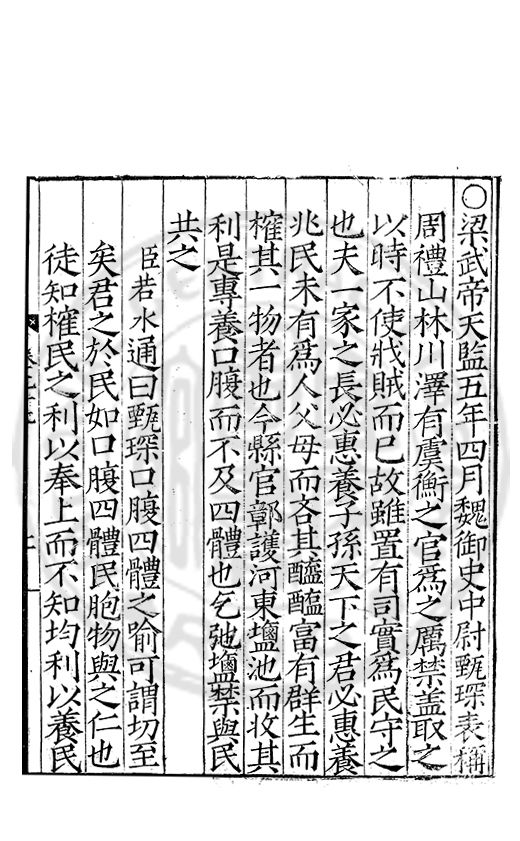 ○梁武帝天監五年四月魏御史中尉甄琛表稱
周禮山林川澤有虞衡之官爲之厲禁蓋取之
以時不使戕賊而已故雖置有司實爲民守之
也夫一家之長必惠養子孫天下之君必惠養
兆民未有爲人父母而吝其醯醢富有群生而
榷其一物者也今縣官鄣護河東鹽池而收其
利是專養口腹而不及四體也乞弛鹽禁與民
共之
臣若水通曰甄琛口腹四體之喻可謂切至
矣君之於民如口腹四體民胞物與之仁也
徒知榷民之利以奉上而不知均利以養民